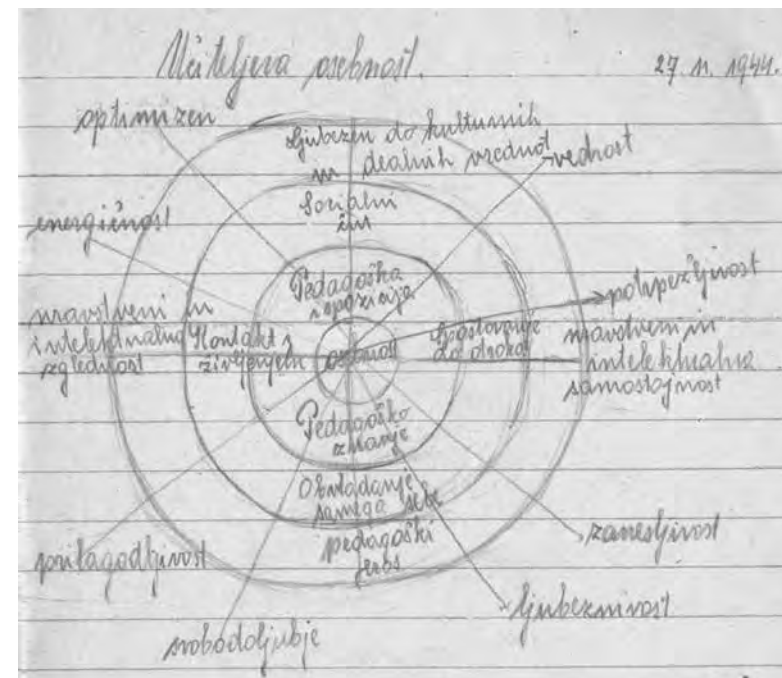 Učiteljeva osebnost.
27. 11. 1944.
optimizem
ljubezen do kulturnih
in idealnih vrednot
vedrost
socialni
čut
energičnost
Pedagoška
dispozicija
potrpežljivost
nravstveni in
intelektualna
zglednost
Kontakt z
življenjem
osebnost
Spoštovanje
do otroka
nravstveni in
intelektualna
samostojnost
Pedagoško
znanje
Obvladanje
samega sebe
pedagoški
eros
zanesljivost
prilagodljivost
ljubeznivost
svobodoljubje